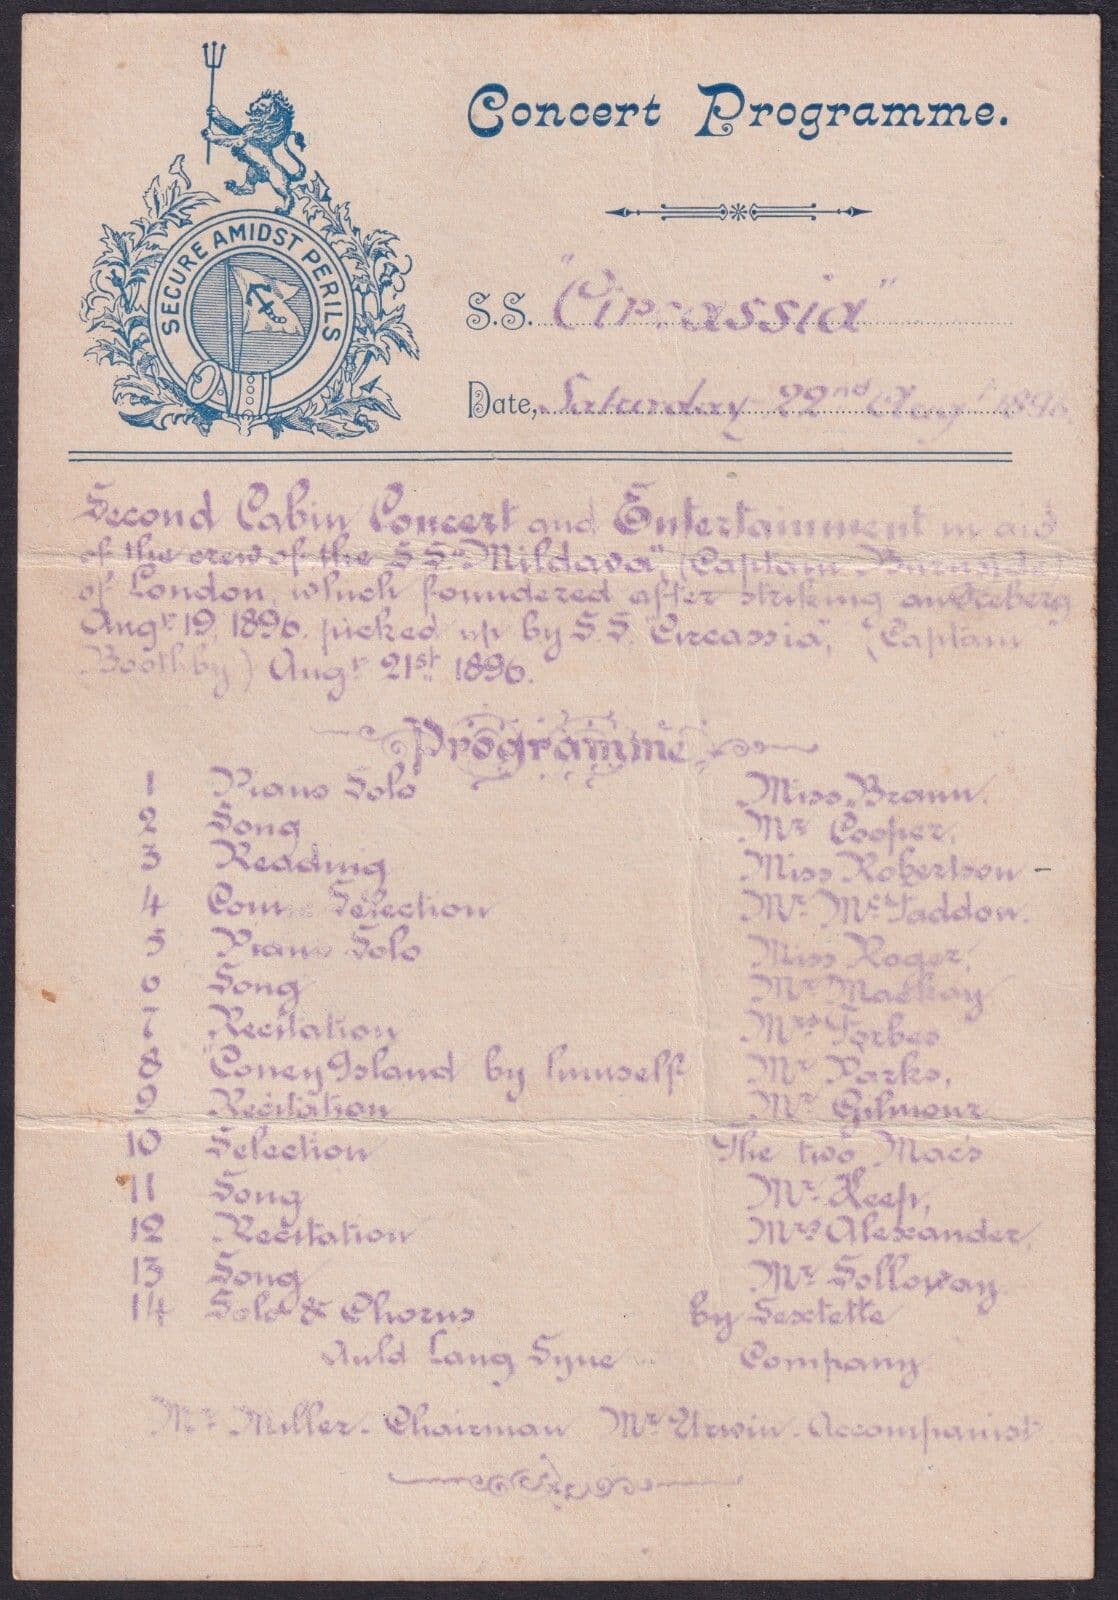 SECURE AMIDST PERILS
Concert Programme.
S.S. "Circassia"
Date, Saturday 22nd Augt 1896.
Second Cabin Concert and Entertainment in aid
of the crew of the S.S. "Mildava" (Captain Burnside)
of London, which foundered after striking an Iceberg
Augt 19, 1896. picked up by S.S. "Circassia", (Captain
Boothby) Augt 21st 1896.
Programme
1 Piano Solo Miss Braun.
2 Song Mr Cooper,
3 Reading Miss Robertson
4 Selection Mr McFaddon.
5 Piano Solo Miss Roger,
6 Song Mr Mackay
7 Recitation Mrs Forbes
8 "Coney Island by himself Mr Parks,
9 Recitation Mr Gilmour
10 Selection The two Macs
11 Song Mr Keep,
12 Recitation Mrs Alexander,
13 Song Mr Solloway
14 Solo & Chorus by Sextette
Auld Lang Syne Company
Mr Miller - Chairman Mr Urwin - Accompanist